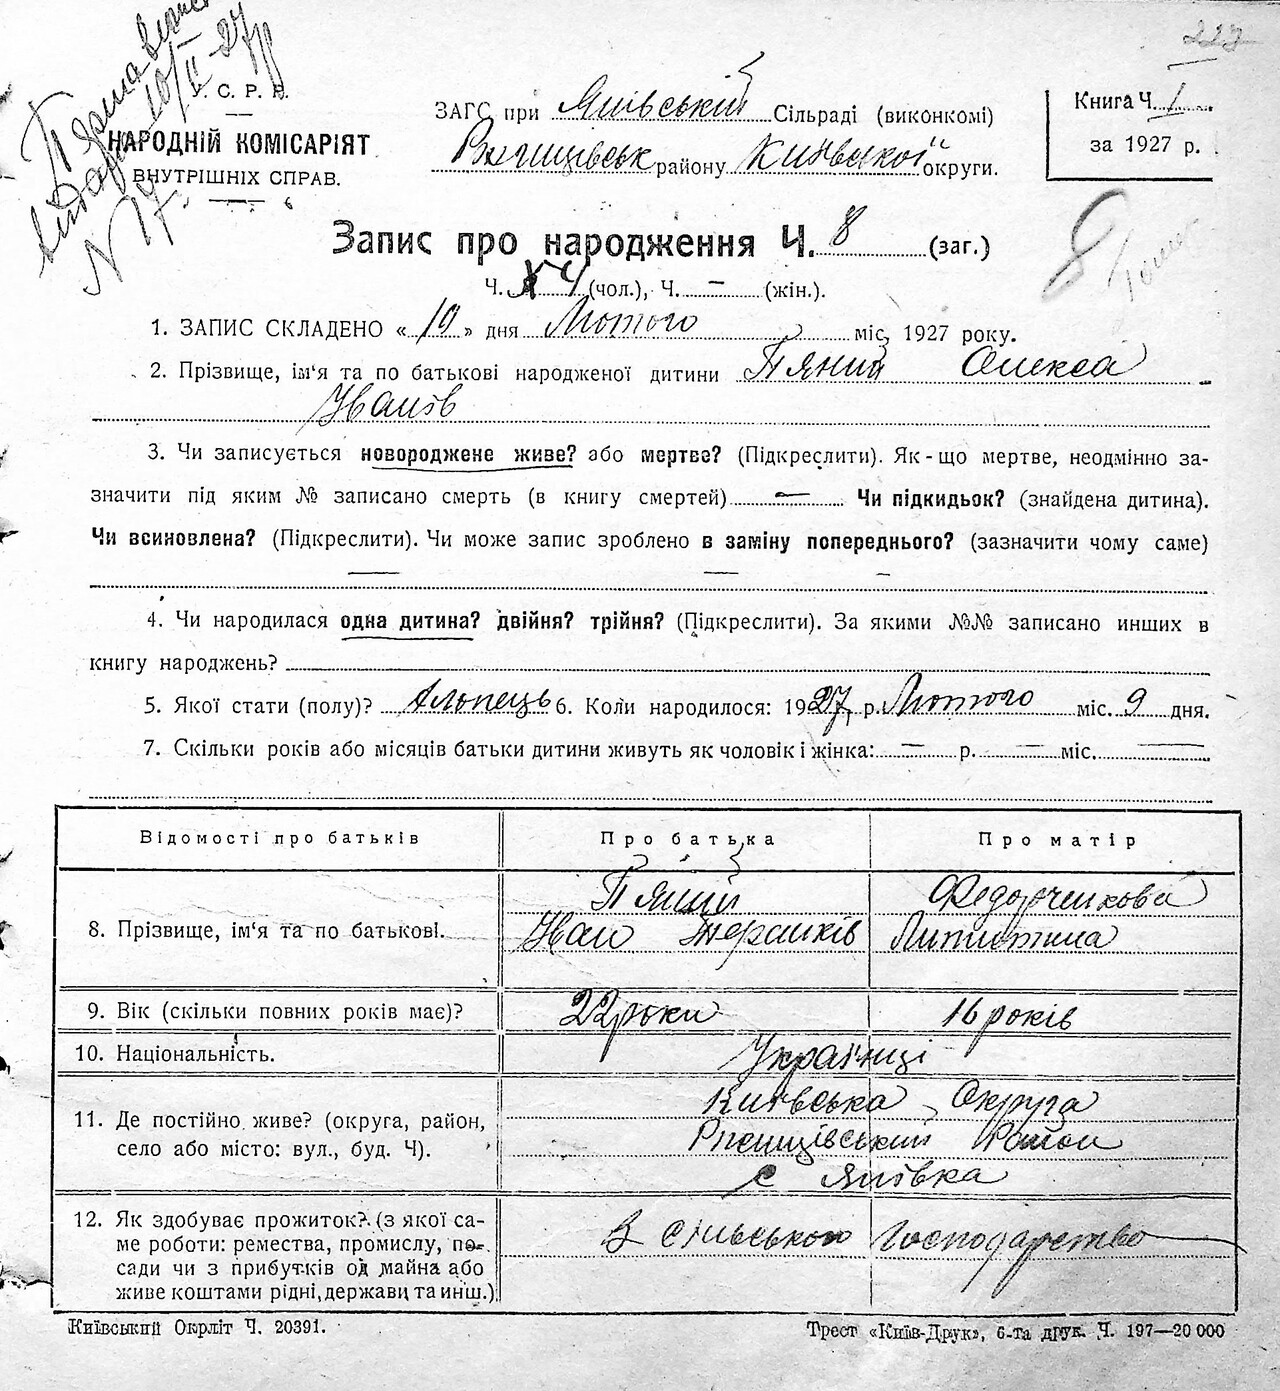 227
У. С. Р. Р.
НАРОДНІЙ КОМІСАРІЯТ
ВНУТРІШНІХ СПРАВ.
10/II 27 р
N 17.
ЗАГС при Янівській Сільраді (виконкомі)
Ржищівськ району Київської округи.
Книга Ч. I
за 1927 р.
Запис про народження Ч. 8 (заг.)
8
Ч. 4 (чол.), Ч. — (жін.).
1. ЗАПИС СКЛАДЕНО «10» дня Лютого міс, 1927 року.
2. Прізвище, ім'я та по батькові народженої дитини Пяний Олекса
Іванів
3. Чи записується новороджене живе? або мертве? (Підкреслити). Як-що мертве, неодмінно за-
значити під яким № записано смерть (в книгу смертей) — Чи підкидьок? (знайдена дитина).
Чи всиновлена? (Підкреслити). Чи може запис зроблено в заміну попереднього? (зазначити чому саме)
— — —
4. Чи народилася одна дитина? двійня? трійня? (Підкреслити). За якими №№ записано инших в
книгу народжень?
5. Якої стати (полу)? Хлопець 6. Коли народилося: 1927, р. Лютого міс. 9 дня.
7. Скільки років або місяців батьки дитини живуть як чоловік і жінка: — р. — міс. —
Відомості про батьків Про батька Про матір
8. Прізвище, ім'я та по батькові. Пяний Федорченкова
Іван
9. Вік (скільки повних років має)? 22 роки 16 років
10. Національність. Українці
11. Де постійно живе? (округа, район, село або місто: вул., буд. Ч). Київська Округа
Ржищівський Район
с Янівка
12. Як здобуває прожиток? (з якої са-
ме роботи: ремества, промислу, по-
сади чи з прибутків од майна або
живе коштами рідні, держави та инш.) З сільського Господарство
Київський Окрліт Ч. 20391.
Трест «Київ-Друк», 6-та друк. Ч. 197—20 000